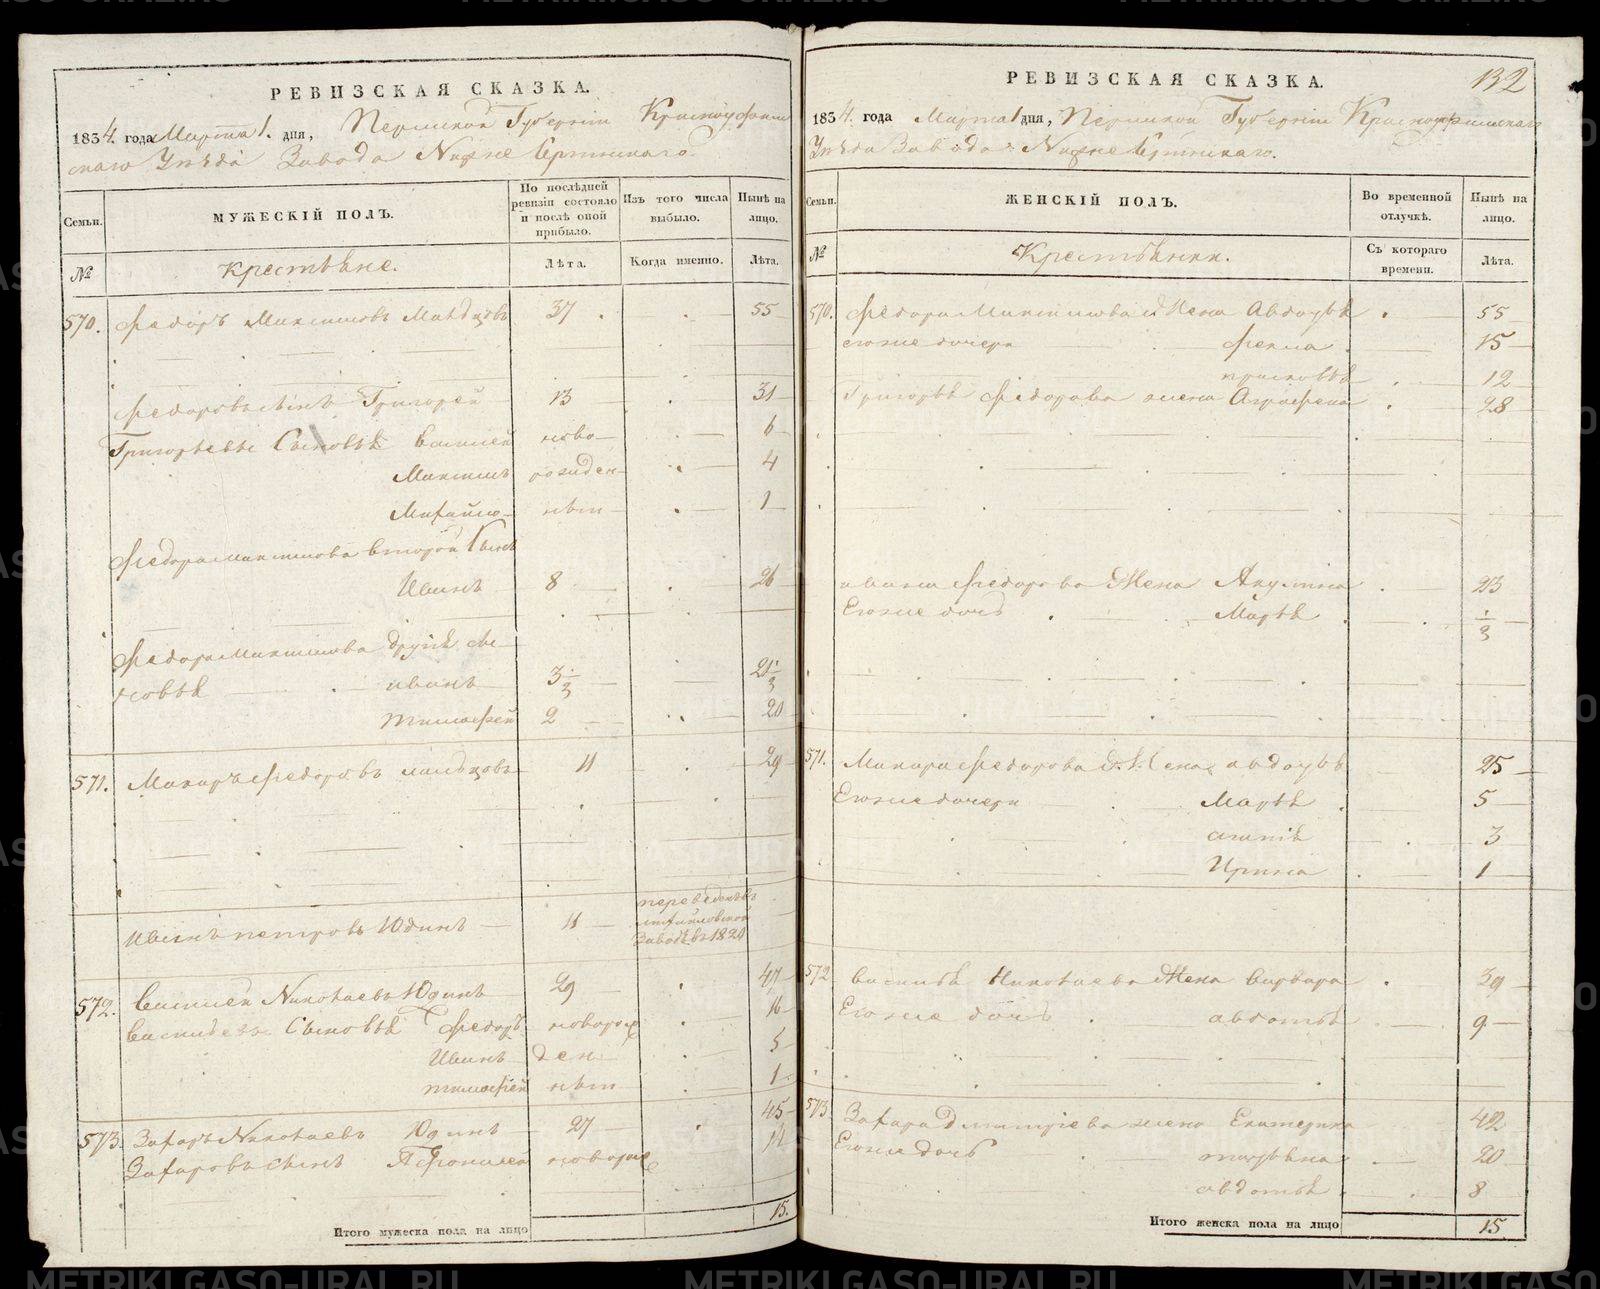 РЕВИЗСКАЯ СКАЗКА.
1834 года Марта 1. дня, Пермской Губернии Красноуфим
скаго Уезда Завода Нижне Сергинскаго.
Семьи.
МУЖЕСКІЙ ПОЛЪ.
По послѣдней ревизіи состояло и послѣ оной прибыло.
Изъ того числа выбыло.
Нынѣ на лицо.
№
Крестьяне.
Лѣта.
Когда именно.
Лѣта.
570. Федоръ Максимовъ 37 55
Федоровъ сынъ Григорей 13 31
Григорьевы Сыновья Василей ново 6
Максимъ рожден 4
Михайло ныи 1
Федора Максимова второй Сынъ
Иванъ 8 26
Федора Максимова другія
иванъ 3
тимофей 2 20
571. Макаръ Федоровъ 11 29
Иванъ петровъ Юдинъ 11 переведенъ въ
михайловской
Заводъ въ 1820
572. Василей Николаевъ Юдинъ 29 47
Васильевы Сыновья Федоръ новорож 16
Иванъ ден 5
тимофей ныи 1
573. Захаръ Николаевъ Юдинъ 27 45
Захаровъ сынъ новорож
Итого мужеска пола на лицо 15.
132
РЕВИЗСКАЯ СКАЗКА.
1834. года Марта 1 дня, Пермской Губернии Красноуфимскаго
Уезда Завода Нижне Сергинскаго.
Семьи.
ЖЕНСКІЙ ПОЛЪ.
Во временной отлучкѣ.
Нынѣ на лицо.
№
Крестьянки.
Съ котораго времени.
Лѣта.
570. Федора Максимова Жена Авдотья 55
егоже дочери Фекла 15
прасковья 12
Григорья Федорова жена Аграфена 28
ивана Федорова Жена Акулина 23
Егоже дочь Марья
571. Макара Федорова Жена авдотья 25
Егоже дочери Марья 5
3
Ирина 1
572 Василья Николаева Жена Варвара 39
Егоже дочь авдотья 9
573. Захара жена Екатерина 42
Егоже дочь татьяна 20
авдотья 8
Итого женска пола на лицо 15.
METRIKI.GASO-URAL.RU